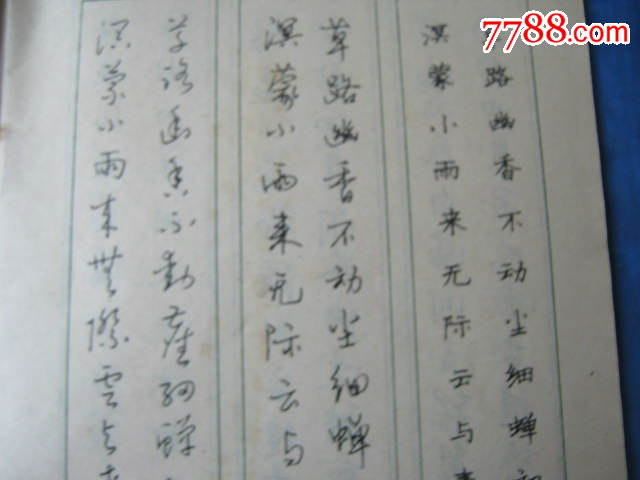 7788.com
路幽香不动尘细蝉
溟蒙小雨来无际云与
草路幽香不动尘细蝉
溟蒙小雨来无际云与
草路幽香不動塵細蟬
溟蒙小雨来無際雲与